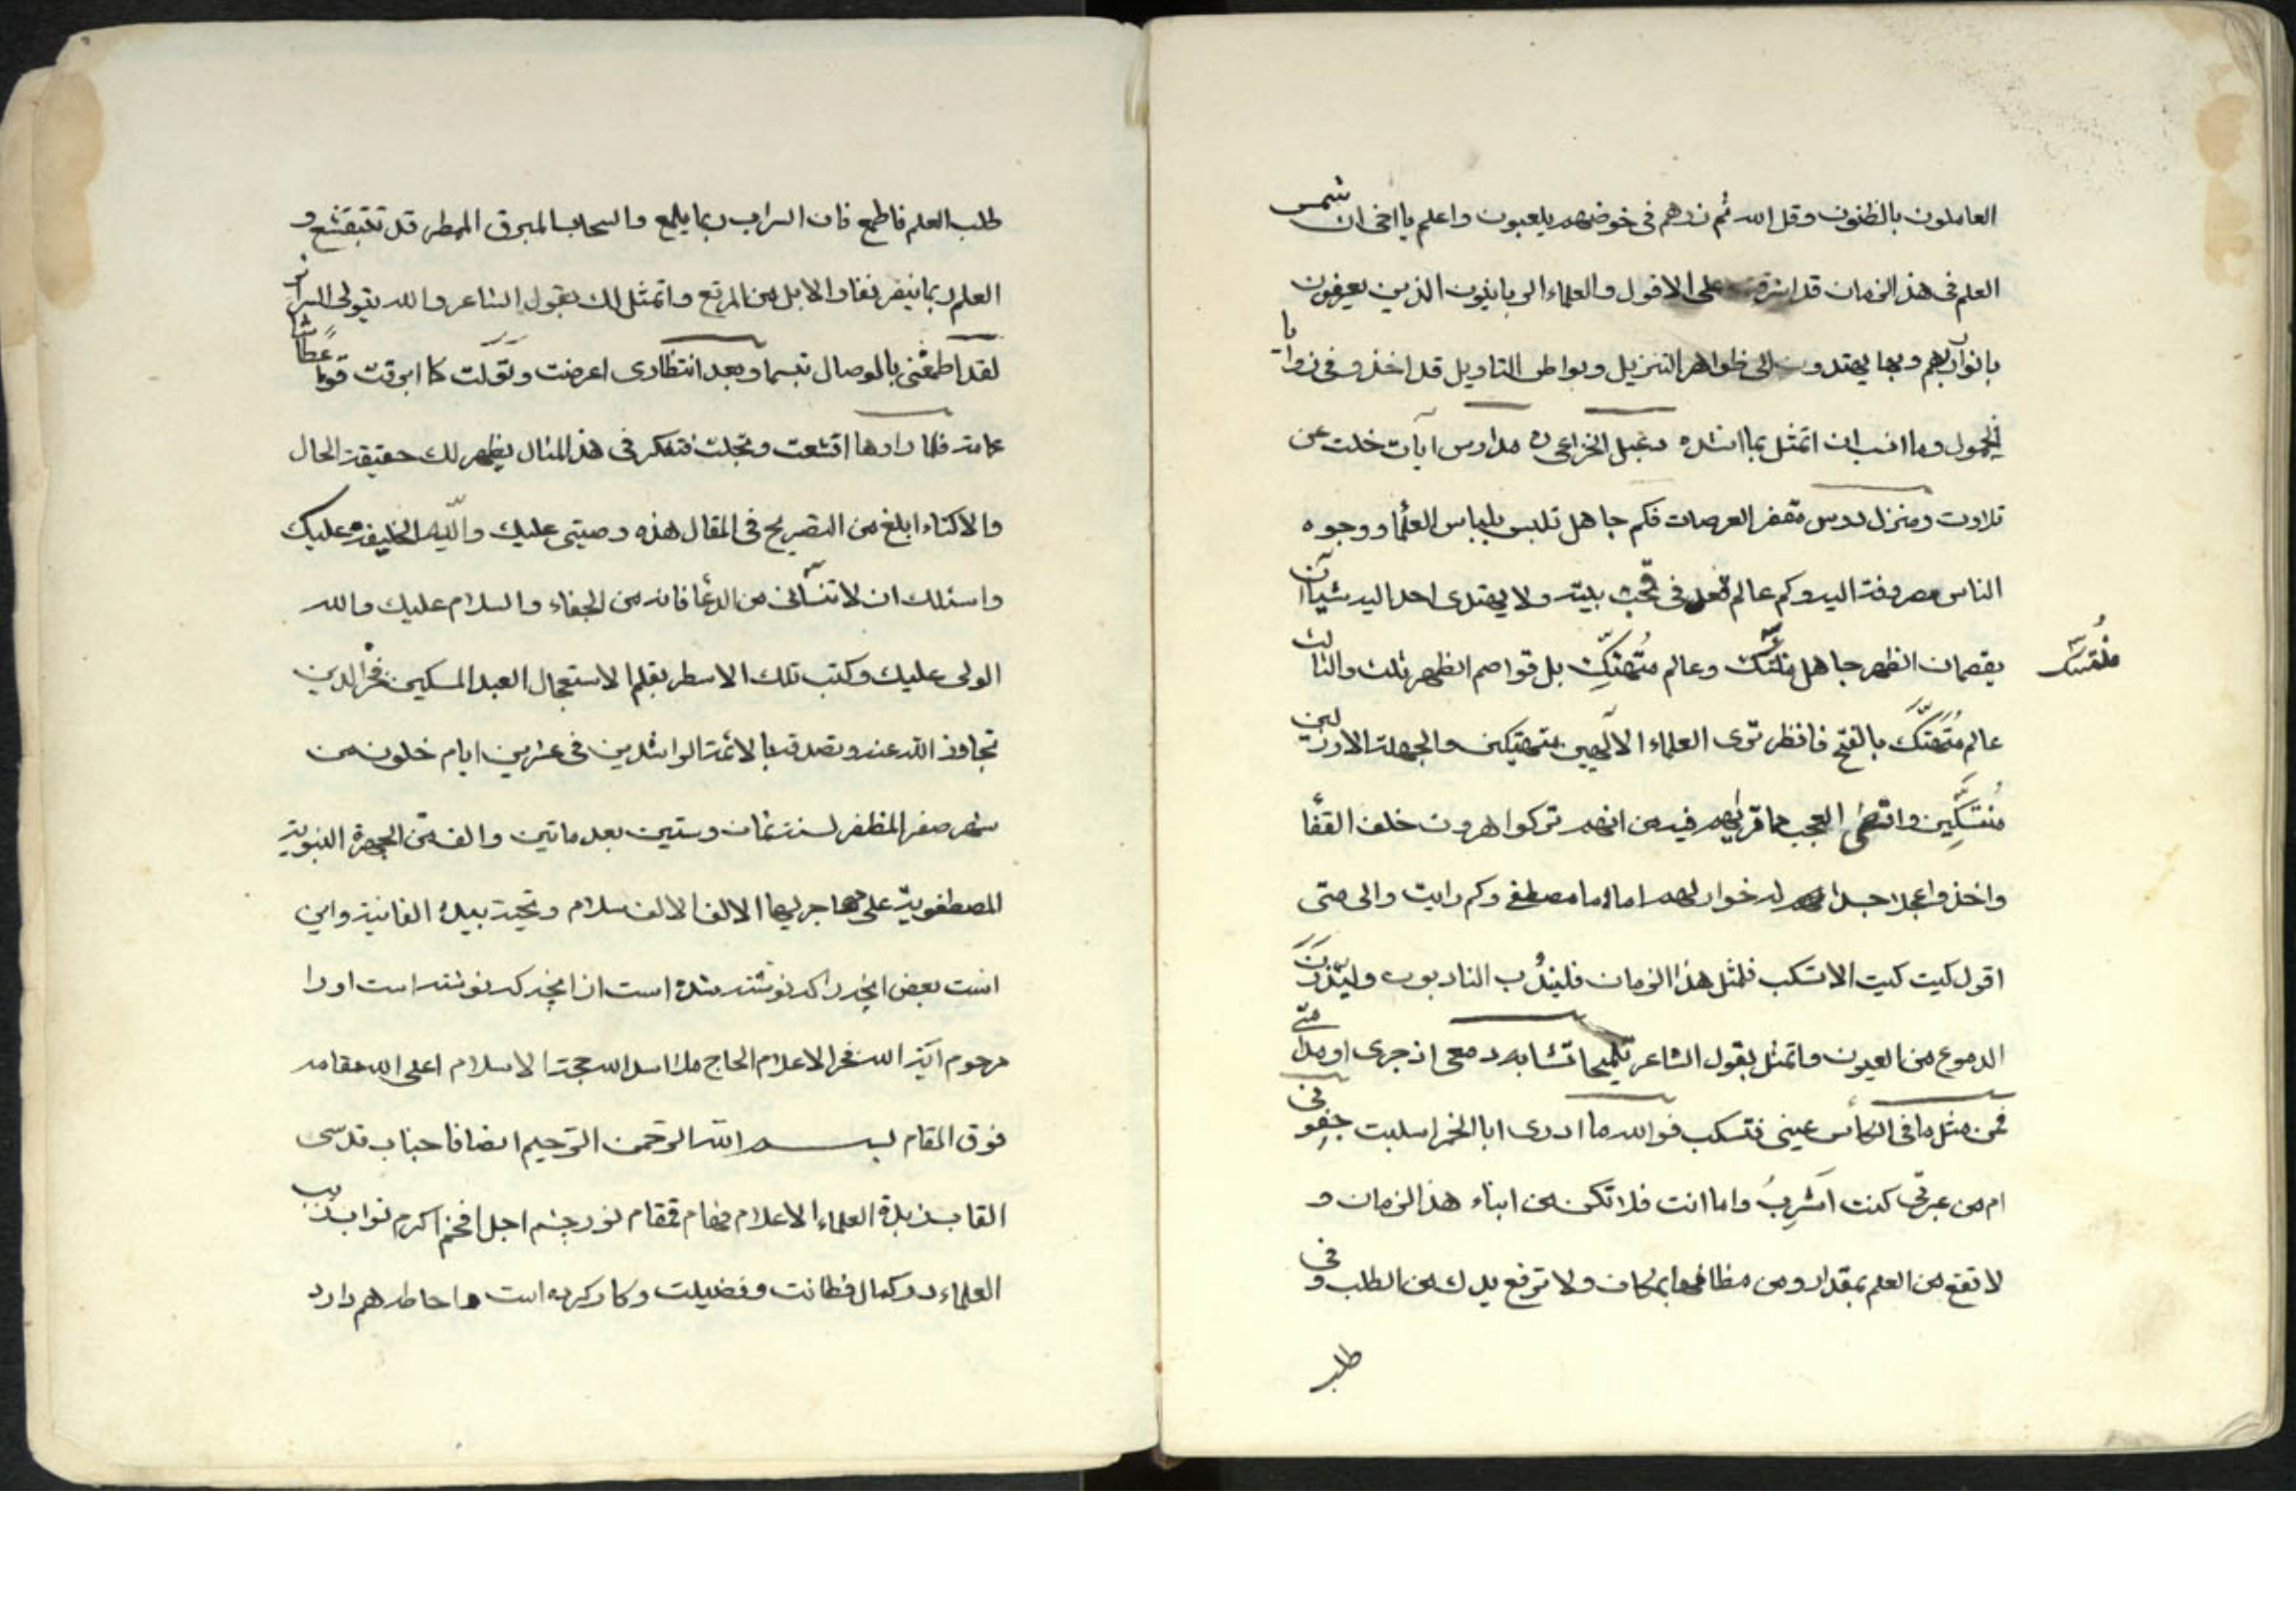 العاملون بالظنون وقل الله ثم ذرهم فى خوضهم يلعبون واعلم يا اخى ان شمس
العلم فى هذ الزمان قد اشرقت على الافول والعلماء الربانيون الذين يعرفون
بانوارهم وبها يهتدون الى ظواهر التنزيل وبواطن التاويل قد اخذو فى زوايا
الخمول وما انسب ان اتمثل بما انشده دعبل الخزاعى ره مدارس آيات خلت عن
تلاوت ومنزل دوس مقفر العرصات فكم جاهل تلبس بلباس العلما ووجوه
الناس مصروفة اليه وكم عالم قعد فى تحت بيته ولا يهتدى احد اليه شيآن
يقصمان الظهر جاهل متنسّك وعالم مُتهتِّك بل قواصم الظهر ثلث والثالث
مُتنسّك
عالم مُتهتَّك بالفتح فانظر ترى العلماء الآلهيين متهتكين والجهلة الارذلين
مُتنسِّكين واقتضى العجب مما قربهم فيه من انهم تركوا هرون خلف القفا
واخذو عجلا جسدا له خوار لهم اماما مصطفى وكم رايت والى متى
اقول كيت كيت الاتسكب فلمثل هذا الزمان فليندُب النادبون وليذرَفَنَّ
الدموع من العيون واتمثل بقول الشاعر تلميحا تشابه دمعى اذ جرى ومدامتى
فمن مثل ما فى الكأس عينى تتسكب فوالله ما ادرى ابالخمر اسلبت جفونى
ام من عبرتى كنت اَشرِبُ واما انت فلا تكن من ابناء هذ الزمان و
لا تقنع من العلم بمقدار ومن مظانها بمكان ولا ترفع يدك من الطلب وفى
طلب
طلب العلم فاطمع فان السراب ربما يلمع والسحاب المبرق الممطر قد تقشع و
العلم ربما ينفر نفار الابل من المرتع واتمثل لك بقول الشاعر والله يتولى السرائر
لقد اطمعتنى بالوصال تبسما وبعد انتظارى اعرضت وتولّت كما ابرقت قوما عطاشا
غمامة فلما راوها اقشعت وتجلت فتفكر فى هذ المثال يظهر لك حقيقة الحال
والاكناء ابلغ من التصريح فى المقال هذه وصيتى عليك والله الخليفة عليك
واسئلك ان لا تنسانى من الدعا فانه من الجفاء والسلام عليك والله
الولى عليك وكتب تلك الاسطر بقلم الاستعجال العبد المسكين فخر الدين
تجاوز الله عنه وتصدق بالائمة الراشدين فى عشرين ايام خلون من
شهر صفر المظفر لسنة ثمان وستين بعد ماتين والف من الهجرة النبوية
المصطفوية على مهاجريها الالف الالف سلام وتحية بيده الفانية واين
است بعض انچه را كه نوشته شده است از انچه كه نوشته است او را
مرحوم آية الله فخر الاعلام الحاج ملا اسد الله حجة الاسلام اعلى الله مقامه
فوق المقام بسم الله الرحمن الرحيم انصافا جناب قدسى
القاب زبدة العلماء الاعلام فخام قمقام نور چشم اجل افخم اكرم نواب
العلماء در كمال فطانت وفضيلت وكار كرده است واحاطه هم دارد